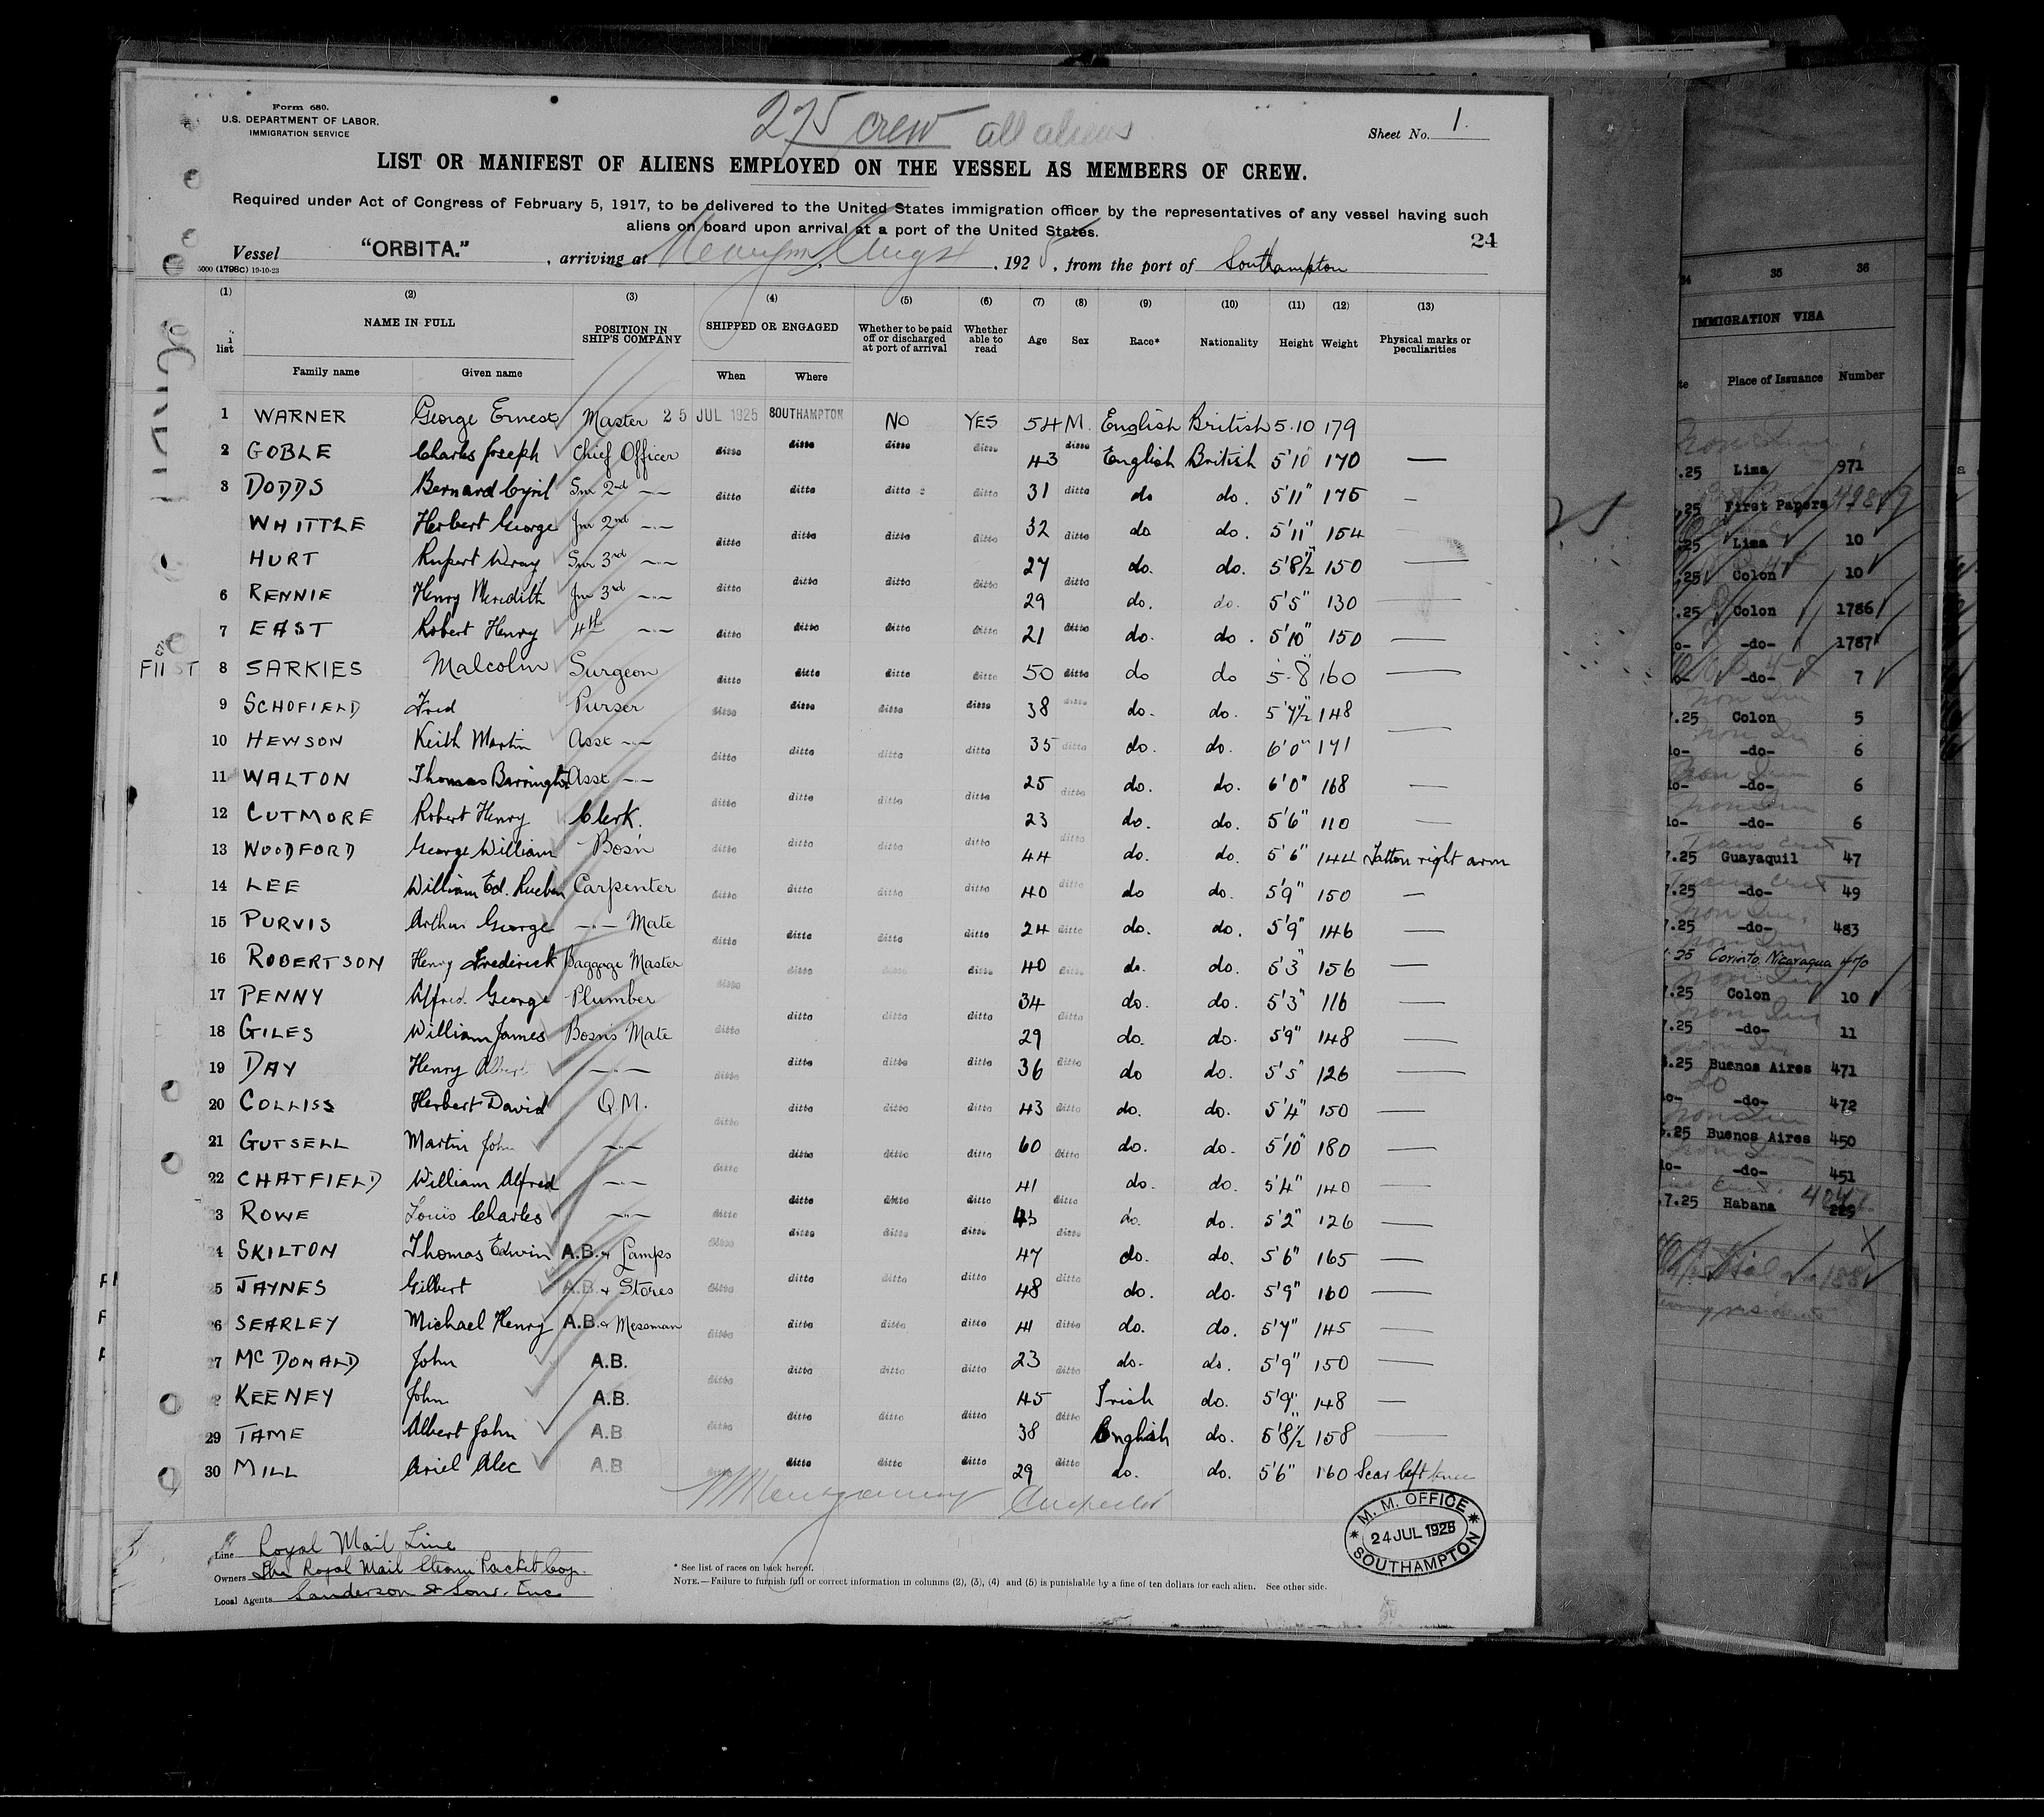 Form 680.
U.S. DEPARTMENT OF LABOR.
IMMIGRATION SERVICE
275 crew all aliens
Sheet No. 1.
LIST OR MANIFEST OF ALIENS EMPLOYED ON THE VESSEL AS MEMBERS OF CREW.
Required under Act of Congress of February 5, 1917, to be delivered to the United States immigration officer by the representatives of any vessel having such
aliens on board upon arrival at a port of the United States.
24
Vessel "ORBITA." , arriving at , 192 , from the port of Southampton
5000 (1798c) 19-10-23
(1) (2) (3) (4) (5) (6) (7) (8) (9) (10) (11) (12) (13)
list NAME IN FULL POSITION IN SHIP'S COMPANY SHIPPED OR ENGAGED Whether to be paid off or discharged at port of arrival Whether able to read Age Sex Race* Nationality Height Weight Physical marks or peculiarities
Family name Given name When Where
1 WARNER George Ernest Master 25 JUL 1925 SOUTHAMPTON NO YES 54 M. English British 5.10 179
2 GOBLE Charles Joseph Chief Officer ditto ditto ditto ditto 43 ditto English British 5'10" 170 —
3 DODDS Bernard Cyril Snr 2nd -"- ditto ditto ditto ditto 31 ditto do do. 5'11" 175 —
WHITTLE Herbert George Jnr 2nd -"- ditto ditto ditto ditto 32 ditto do do. 5'11" 154
HURT Rupert Wray Snr 3rd -"- ditto ditto ditto ditto 27 ditto do. do. 5'8½" 150 —
6 RENNIE Henry Meredith Jnr 3rd -"- ditto ditto ditto ditto 29 ditto do. do. 5'5" 130 —
7 EAST Robert Henry 4th -"- ditto ditto ditto ditto 21 ditto do. do. 5'10" 150 —
8 SARKIES Malcolm Surgeon ditto ditto ditto ditto 50 ditto do do 5.8 160 —
9 SCHOFIELD Fred Purser ditto ditto ditto ditto 38 ditto do. do. 5'7½" 148 —
10 HEWSON Keith Martin Asst -"- ditto ditto ditto ditto 35 ditto do. do. 6'0" 171
11 WALTON Thomas Barrington Asst -"- ditto ditto ditto ditto 25 ditto do. do. 6'0" 168 —
12 CUTMORE Robert Henry Clerk. ditto ditto ditto ditto 23 ditto do. do. 5'6" 110 —
13 WOODFORD George William Bosn ditto ditto ditto ditto 44 ditto do. do. 5'6" 144 Tattoo right arm
14 LEE William Ed. Rueben Carpenter ditto ditto ditto ditto 40 ditto do do. 5'9" 150 —
15 PURVIS Arthur George -"- Mate ditto ditto ditto ditto 24 ditto do. do. 5'9" 146 —
16 ROBERTSON Henry Frederick Baggage Master ditto ditto ditto ditto 40 ditto do. do. 5'3" 156 —
17 PENNY Alfred George Plumber ditto ditto ditto ditto 34 ditto do. do. 5'3" 116 —
18 GILES William James Bosn's Mate ditto ditto ditto ditto 29 ditto do. do. 5'9" 148 —
19 DAY Henry Albert -"- ditto ditto ditto ditto 36 ditto do do. 5'5" 126 —
20 COLLISS Herbert David Q.M. ditto ditto ditto ditto 43 ditto do. do. 5'4" 150 —
21 GUTSELL Martin John -"- ditto ditto ditto ditto 60 ditto do. do. 5'10" 180 —
22 CHATFIELD William Alfred -"- ditto ditto ditto ditto 41 ditto do. do. 5'4" 140 —
23 ROWE Louis Charles -"- ditto ditto ditto ditto 43 ditto do. do. 5'2" 126 —
24 SKILTON Thomas Edwin A.B. & Lamps ditto ditto ditto ditto 47 ditto do. do. 5'6" 165 —
25 JAYNES Gilbert A.B. & Stores ditto ditto ditto ditto 48 ditto do. do. 5'9" 160 —
26 SEARLEY Michael Henry A.B. & Messman ditto ditto ditto ditto 41 ditto do. do. 5'7" 145 —
27 MCDONALD John A.B. ditto ditto ditto ditto 23 ditto do. do. 5'9" 150 —
KEENEY John A.B. ditto ditto ditto ditto 45 ditto Irish do. 5'9" 148 —
29 TAME Albert John A.B ditto ditto ditto ditto 38 ditto English do. 5'8½" 158 —
30 MILL Ariel Alec A.B ditto ditto ditto ditto 29 ditto do. do. 5'6" 160 Scar left knee
Montgomery Inspector
M. M. OFFICE
24 JUL 1925
SOUTHAMPTON
Line Royal Mail Line
Owners The Royal Mail Steam Packet Coy.
Local Agents Sanderson & Son. Inc
* See list of races on back hereof.
NOTE.—Failure to furnish full or correct information in columns (2), (3), (4) and (5) is punishable by a fine of ten dollars for each alien. See other side.
35 36
IMMIGRATION VISA
Place of Issuance Number
.25 Lima 971
.25 First Papers
.25 Lima 10
.25 Colon 10
.25 Colon 1786
-do- 1787
-do- 7
.25 Colon 5
-do- 6
-do- 6
-do- 6
.25 Guayaquil 47
.25 -do- 49
.25 -do- 483
25 Corinto Nicaragua 470
.25 Colon 10
.25 -do- 11
.25 Buenos Aires 471
-do- 472
.25 Buenos Aires 450
-do- 451
.7.25 Habana 229